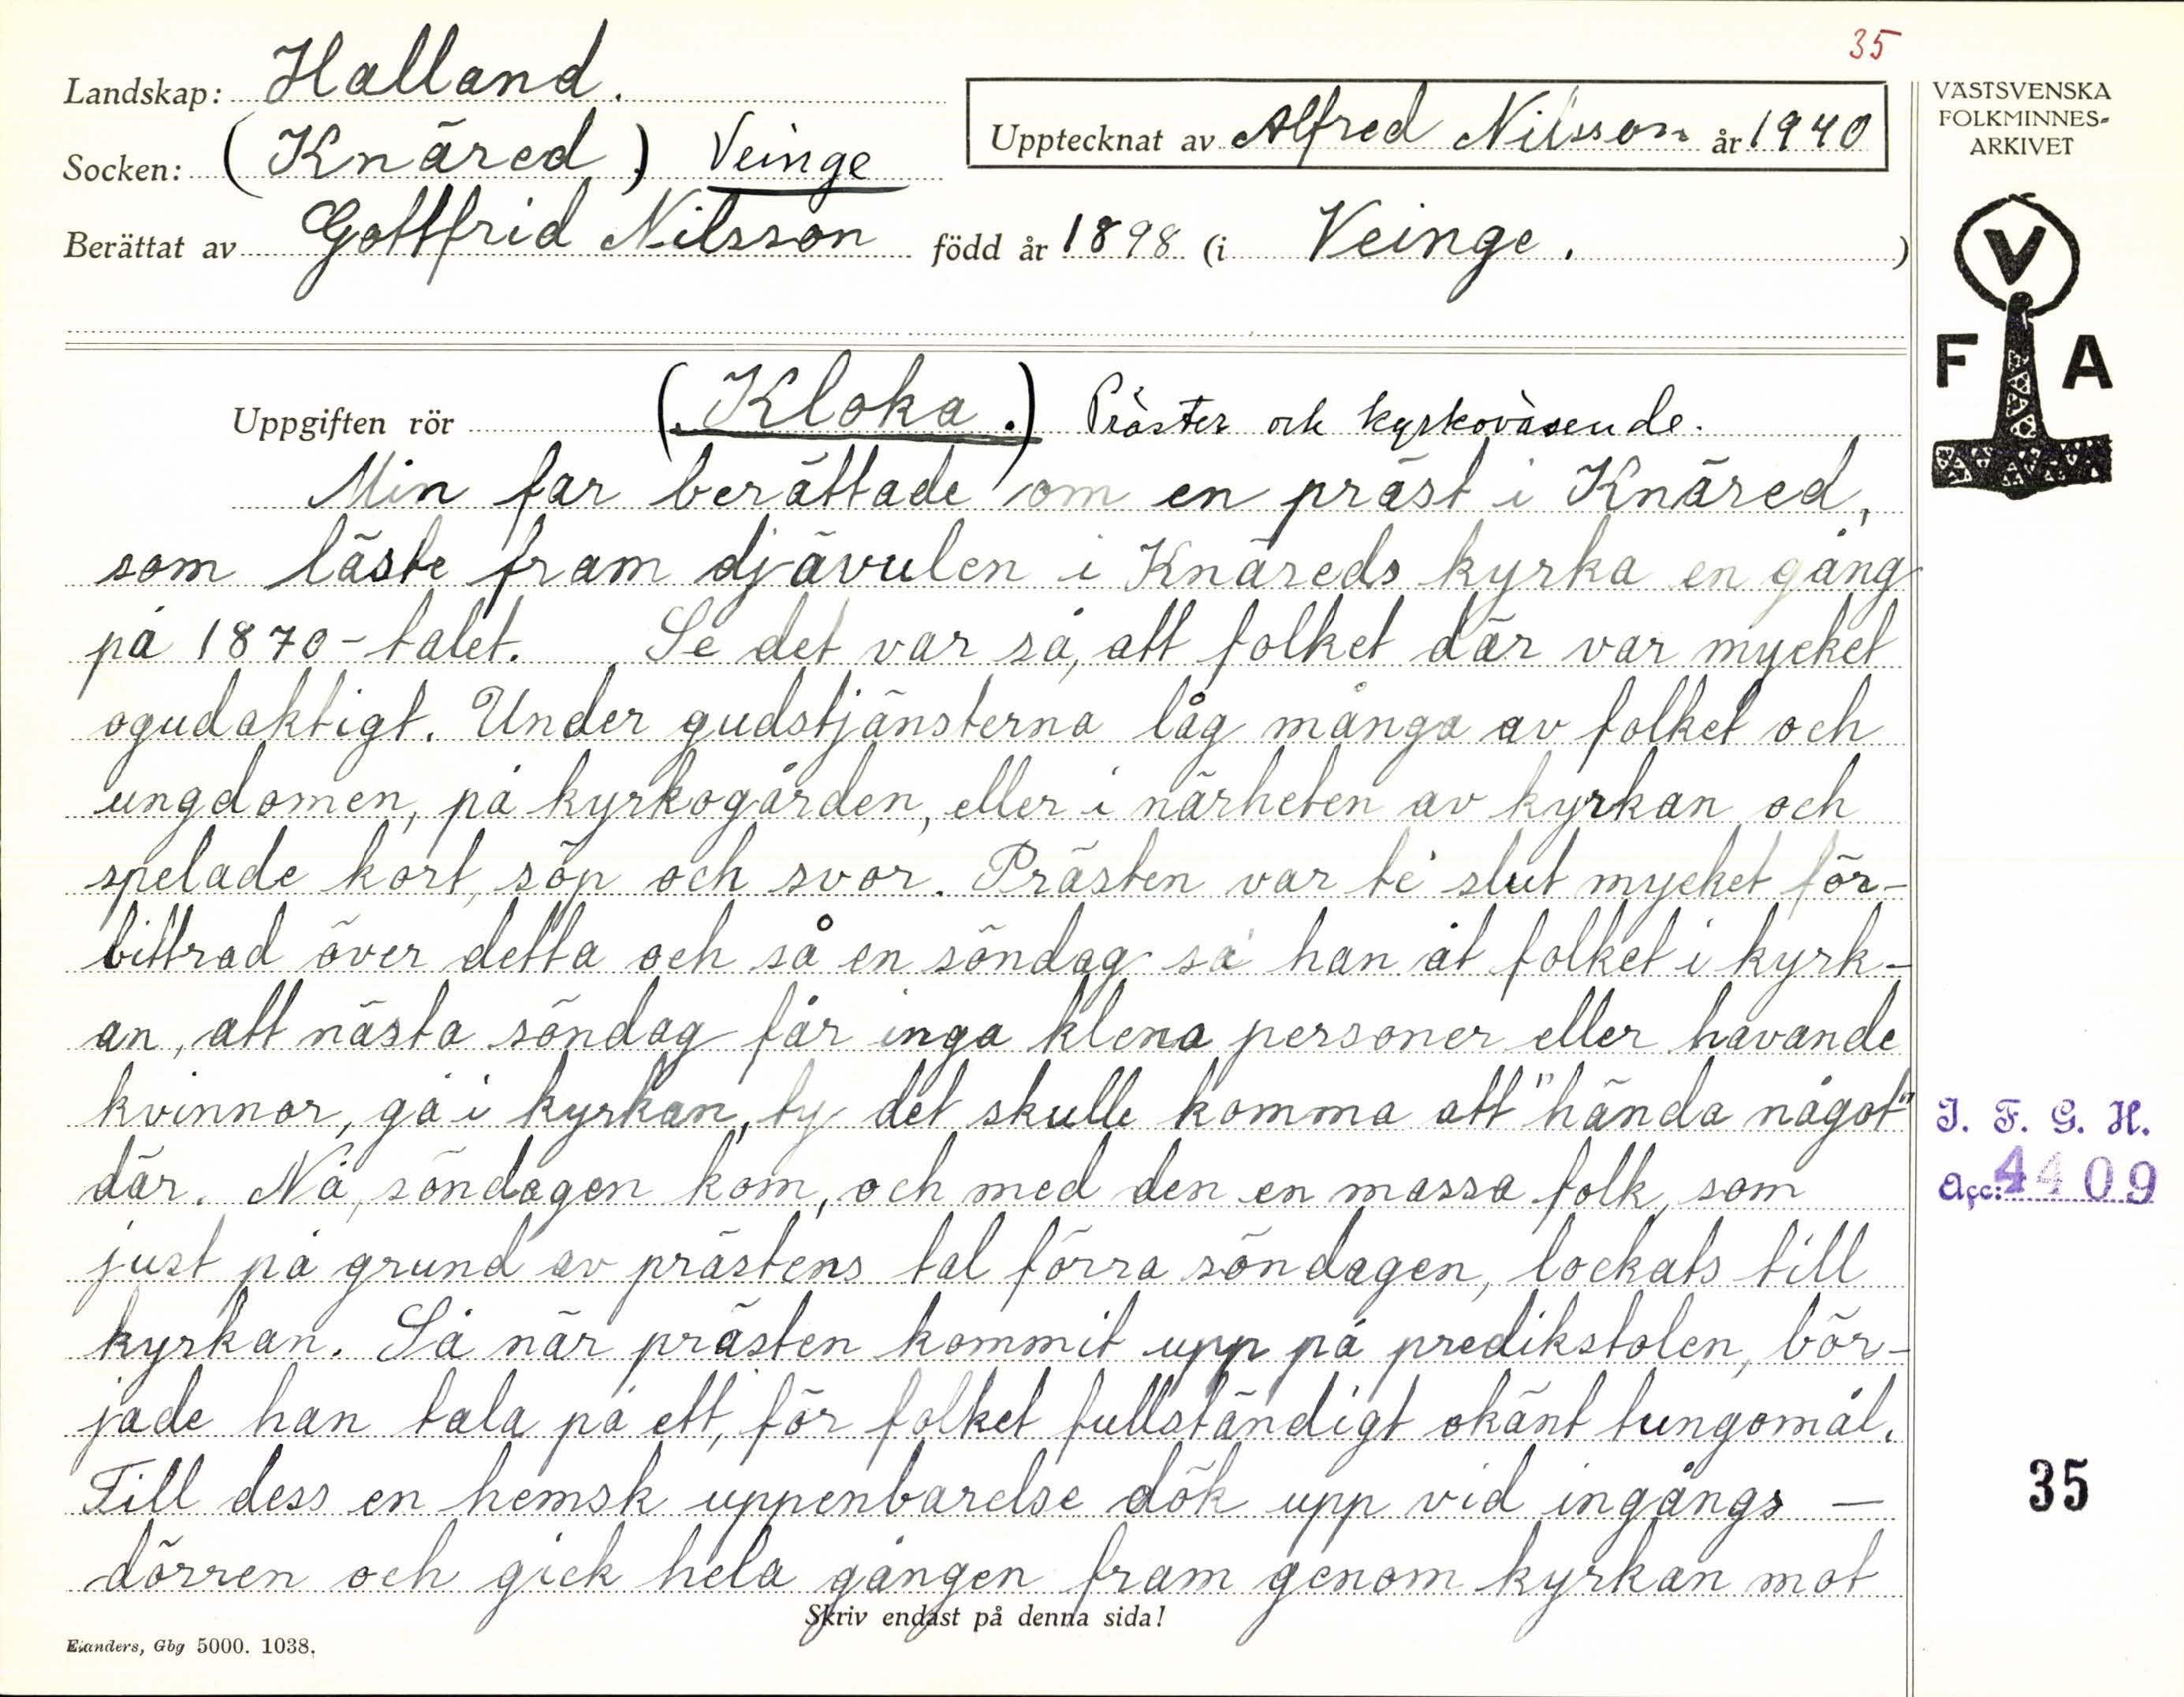 35
Landskap: Halland.
Socken: (Knäred) Veinge
Upptecknat av Alfred Nilsson år 1940
Berättat av Gottfrid Nilsson född år 1898 (i Veinge.)
VÄSTSVENSKA
FOLKMINNES-
ARKIVET
V
F A
Uppgiften rör (Kloka.) Präster och kyrkoväsende.
Min far berättade om en präst i Knäred,
som läste fram djävulen i Knäreds kyrka en gång
på 1870-talet. Se det var så, att folket där var mycket
ogudaktigt. Under gudstjänsterna låg många av folket och
ungdomen, på kyrkogården, eller i närheten av kyrkan och
spelade kort, söp och svor. Prästen var te' slut mycket för-
bittrad över detta och så en söndag sa' han åt folket i kyrk-
an, att nästa söndag får inga klena personer eller havande
kvinnor, gå i kyrkan, ty det skulle komma att "hända något"
där. Nå, söndagen kom, och med den en massa folk, som
just på grund av prästens tal förra söndagen, lockats till
kyrkan. Så när prästen kommit upp på predikstolen, bör-
jade han tala på ett, för folket fullständigt okänt tungomål.
Till dess en hemsk uppenbarelse dök upp vid ingångs-
dörren och gick hela gången fram genom kyrkan mot
Skriv endast på denna sida!
Elanders, Gbg 5000. 1038.
I. F. G. H.
Acc: 4409
35